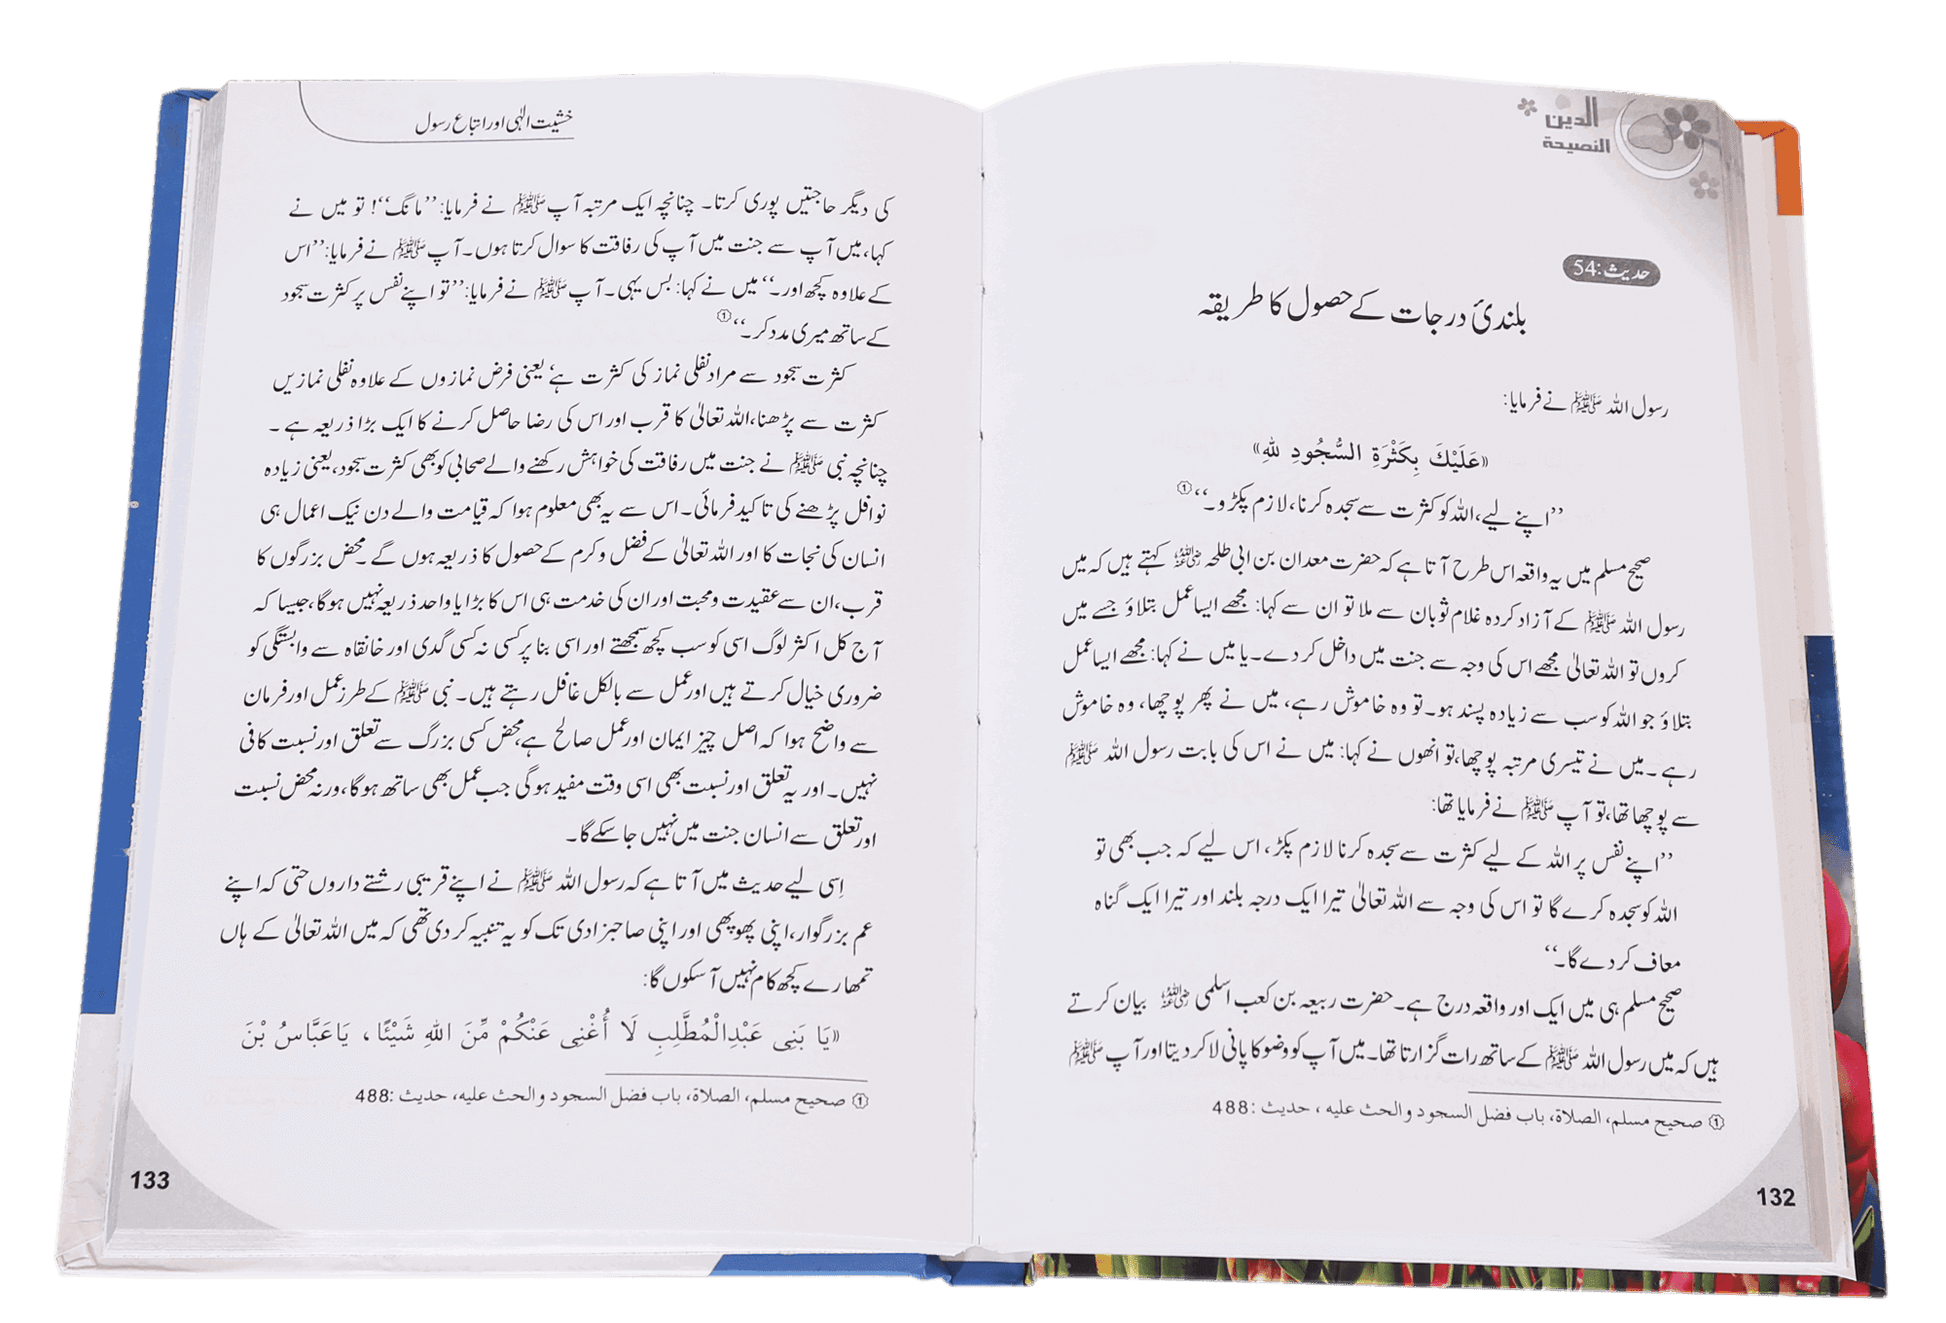 الدین
النصیحة
حدیث:54
بلندیٔ درجات کے حصول کا طریقہ
رسول اللہ ﷺ نے فرمایا:
«عَلَيْكَ بِكَثْرَةِ السُّجُودِ لِلّٰهِ»
’’اپنے لیے، اللہ کو کثرت سے سجدہ کرنا، لازم پکڑو۔‘‘①
صحیح مسلم میں یہ واقعہ اس طرح آتا ہے کہ حضرت معدان بن ابی طلحہ رضی اللہ عنہ کہتے ہیں کہ میں
رسول اللہ ﷺ کے آزاد کردہ غلام ثوبان سے ملا تو ان سے کہا: مجھے ایسا عمل بتلاؤ جسے میں
کروں تو اللہ تعالیٰ مجھے اس کی وجہ سے جنت میں داخل کر دے۔ یا میں نے کہا: مجھے ایسا عمل
بتلاؤ جو اللہ کو سب سے زیادہ پسند ہو۔ تو وہ خاموش رہے، میں نے پھر پوچھا، وہ خاموش
رہے۔ میں نے تیسری مرتبہ پوچھا، تو انھوں نے کہا: میں نے اس کی بابت رسول اللہ ﷺ
سے پوچھا تھا، تو آپ ﷺ نے فرمایا تھا:
’’اپنے نفس پر اللہ کے لیے کثرت سے سجدہ کرنا لازم پکڑ، اس لیے کہ جب بھی تو
اللہ کو سجدہ کرے گا تو اس کی وجہ سے اللہ تعالیٰ تیرا ایک درجہ بلند اور تیرا ایک گناہ
معاف کر دے گا۔‘‘
صحیح مسلم ہی میں ایک اور واقعہ درج ہے۔ حضرت ربیعہ بن کعب اسلمی رضی اللہ عنہ بیان کرتے
ہیں کہ میں رسول اللہ ﷺ کے ساتھ رات گزارتا تھا۔ میں آپ کو وضو کا پانی لا کر دیتا اور آپ ﷺ
① صحیح مسلم، الصلاة، باب فضل السجود والحث علیه، حدیث:488
132
خشیت الٰہی اور اتباع رسول
کی دیگر حاجتیں پوری کرتا۔ چنانچہ ایک مرتبہ آپ ﷺ نے فرمایا: ’’مانگ‘‘! تو میں نے
کہا، میں آپ سے جنت میں آپ کی رفاقت کا سوال کرتا ہوں۔ آپ ﷺ نے فرمایا: ’’اس
کے علاوہ کچھ اور۔‘‘ میں نے کہا: بس یہی۔ آپ ﷺ نے فرمایا: ’’تو اپنے نفس پر کثرت سجود
کے ساتھ میری مدد کر۔‘‘①
کثرت سجود سے مراد نفلی نماز کی کثرت ہے، یعنی فرض نمازوں کے علاوہ نفلی نمازیں
کثرت سے پڑھنا، اللہ تعالیٰ کا قرب اور اس کی رضا حاصل کرنے کا ایک بڑا ذریعہ ہے۔
چنانچہ نبی ﷺ نے جنت میں رفاقت کی خواہش رکھنے والے صحابی کو بھی کثرت سجود، یعنی زیادہ
نوافل پڑھنے کی تاکید فرمائی۔ اس سے یہ بھی معلوم ہوا کہ قیامت والے دن نیک اعمال ہی
انسان کی نجات کا اور اللہ تعالیٰ کے فضل و کرم کے حصول کا ذریعہ ہوں گے۔ محض بزرگوں کا
قرب، ان سے عقیدت و محبت اور ان کی خدمت ہی اس کا بڑا یا واحد ذریعہ نہیں ہوگا، جیسا کہ
آج کل اکثر لوگ اسی کو سب کچھ سمجھتے اور اسی بنا پر کسی نہ کسی گدی اور خانقاہ سے وابستگی کو
ضروری خیال کرتے ہیں اور عمل سے بالکل غافل رہتے ہیں۔ نبی ﷺ کے طرز عمل اور فرمان
سے واضح ہوا کہ اصل چیز ایمان اور عمل صالح ہے، محض کسی بزرگ سے تعلق اور نسبت کافی
نہیں۔ اور یہ تعلق اور نسبت بھی اسی وقت مفید ہوگی جب عمل بھی ساتھ ہوگا، ورنہ محض نسبت
اور تعلق سے انسان جنت میں نہیں جا سکے گا۔
اِسی لیے حدیث میں آتا ہے کہ رسول اللہ ﷺ نے اپنے قریبی رشتے داروں حتی کہ اپنے
عم بزرگوار، اپنی پھوپھی اور اپنی صاحبزادی تک کو یہ تنبیہ کر دی تھی کہ میں اللہ تعالیٰ کے ہاں
تمھارے کچھ کام نہیں آ سکوں گا:
«يَا بَنِى عَبْدِالْمُطَّلِبِ لَا أُغْنِى عَنْكُمْ مِّنَ اللّٰهِ شَيْئًا، يَاعَبَّاسُ بْنَ
① صحیح مسلم، الصلاة، باب فضل السجود والحث علیه، حدیث:488
133